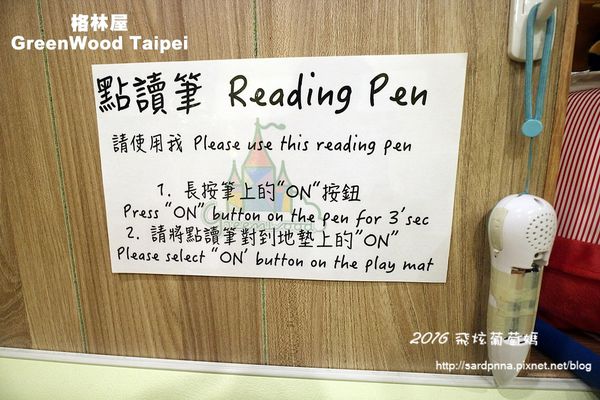 格林屋
GreenWood Taipei
點讀筆 Reading Pen
請使用我 Please use this reading pen
1. 長按筆上的"ON"按鈕
Press "ON" button on the pen for 3'sec
2. 請將點讀筆對到地墊上的"ON"
Please select "ON' button on the play mat
2016 飛炫葡萄媽
http://sardpnna.pixnet.net/blog